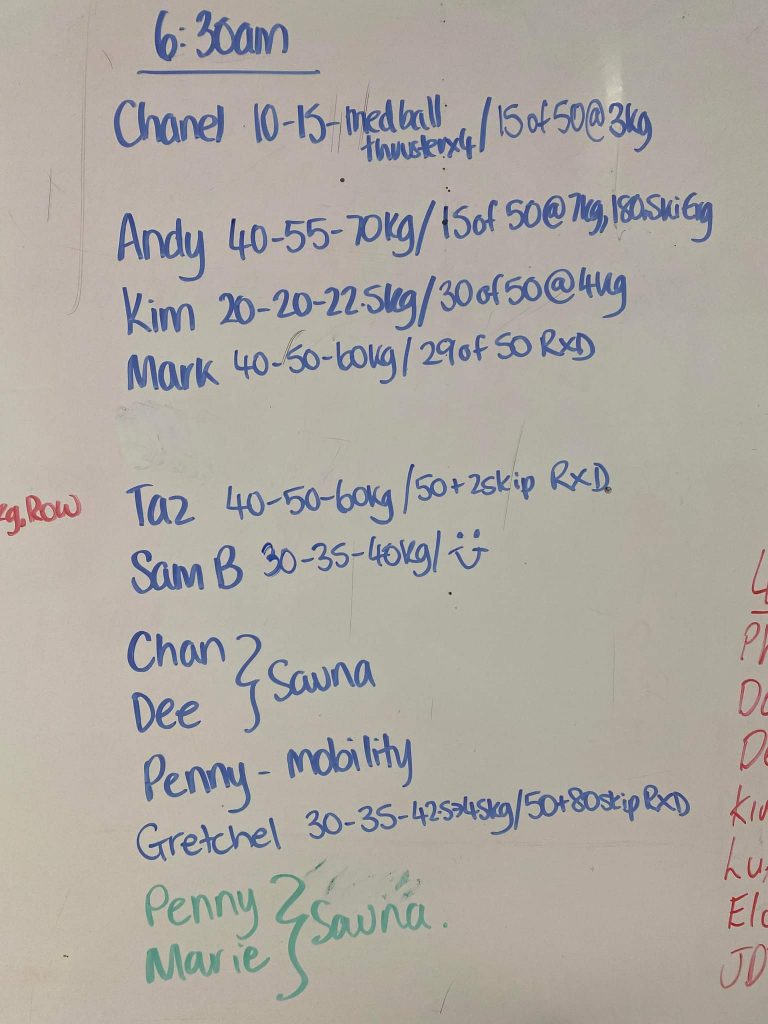 6:30am
Chanel 10-15-medball thrusterx4/15 of 50@3kg
Andy 40-55-70kg/15 of 50@7kg, 180.SkiErg
Kim 20-20-22.5kg/30 of 50@4kg
Mark 40-50-60kg/29 of 50 RxD
kg.Row
Taz 40-50-60kg/50+2skip RxD.
Sam B 30-35-40kg/
Chan
Dee } Sauna
Penny - mobility
Gretchel 30-35-42.5→45kg/50+80skip RxD
Penny
Marie } Sauna.